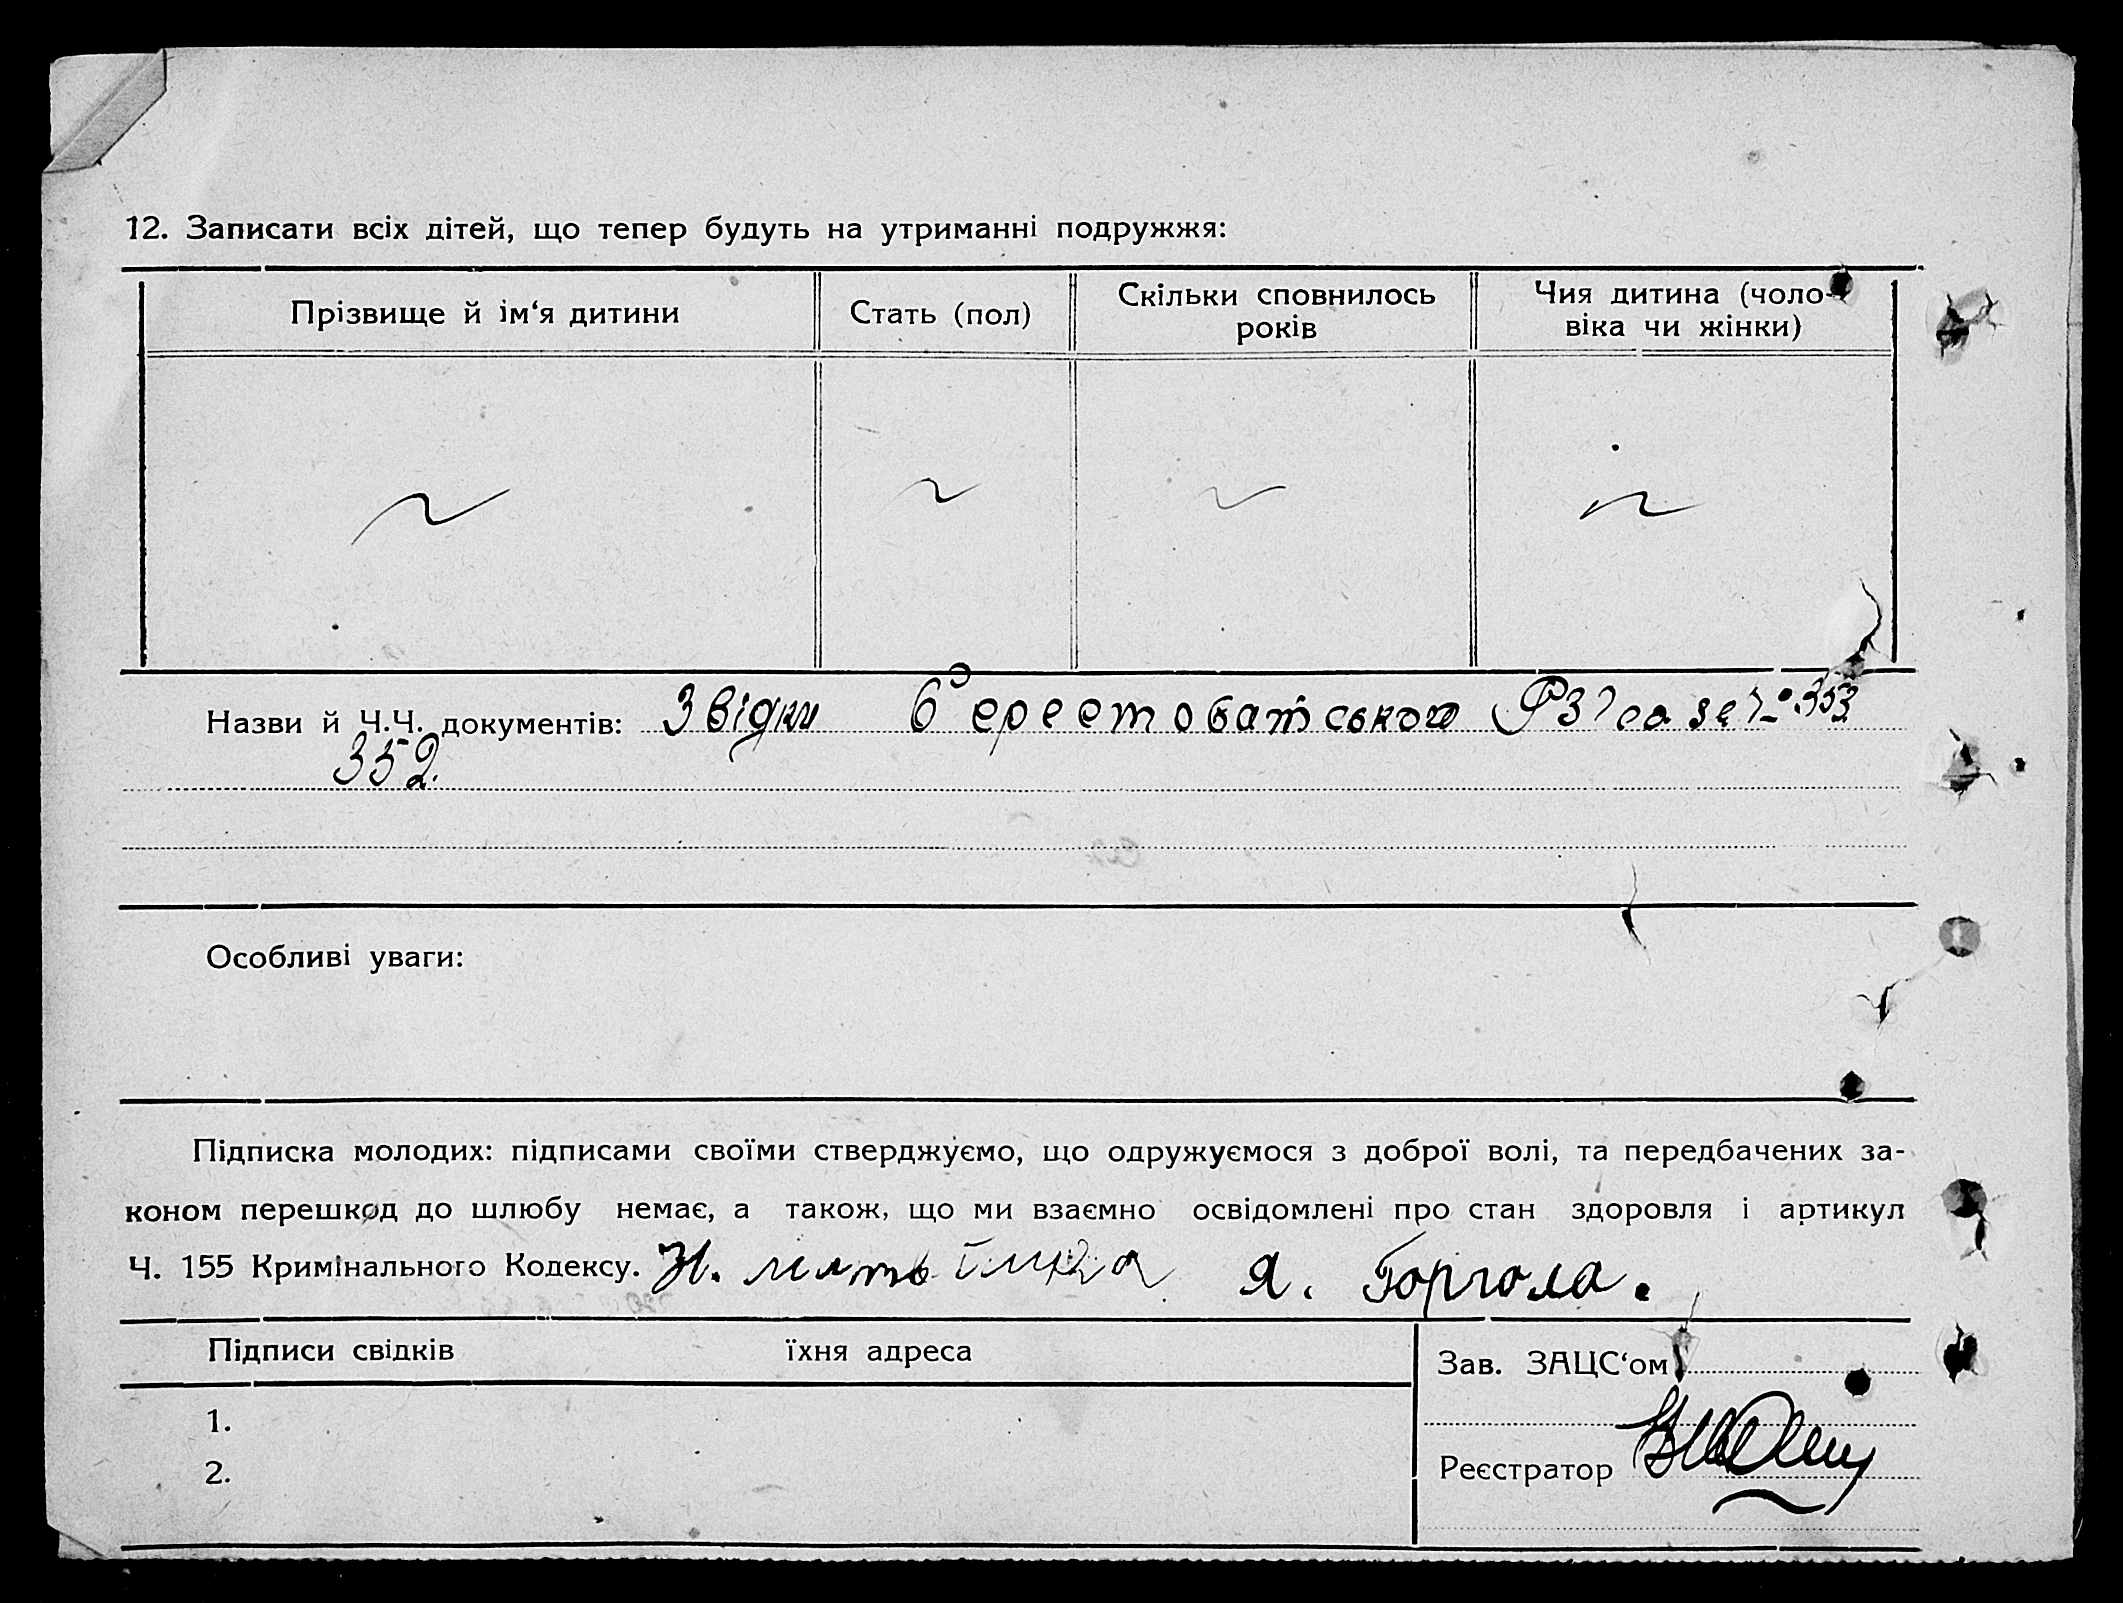 12. Записати всіх дітей, що тепер будуть на утриманні подружжя:
Прізвище й ім‘я дитини Стать (пол) Скільки сповнилось років Чия дитина (чоловіка чи жінки)
Назви й Ч.Ч. документів: Звідки 353
352.
Особливі уваги:
Підписка молодих: підписами своїми стверджуємо, що одружуємося з доброї волі, та передбачених за-
коном перешкод до шлюбу немає, а також, що ми взаємно освідомлені про стан здоровля і артикул
Ч. 155 Кримінального Кодексу. Н. Я. Горгола.
Підписи свідків їхня адреса
Зав. ЗАЦС‘ом
1.
2.
Реєстратор